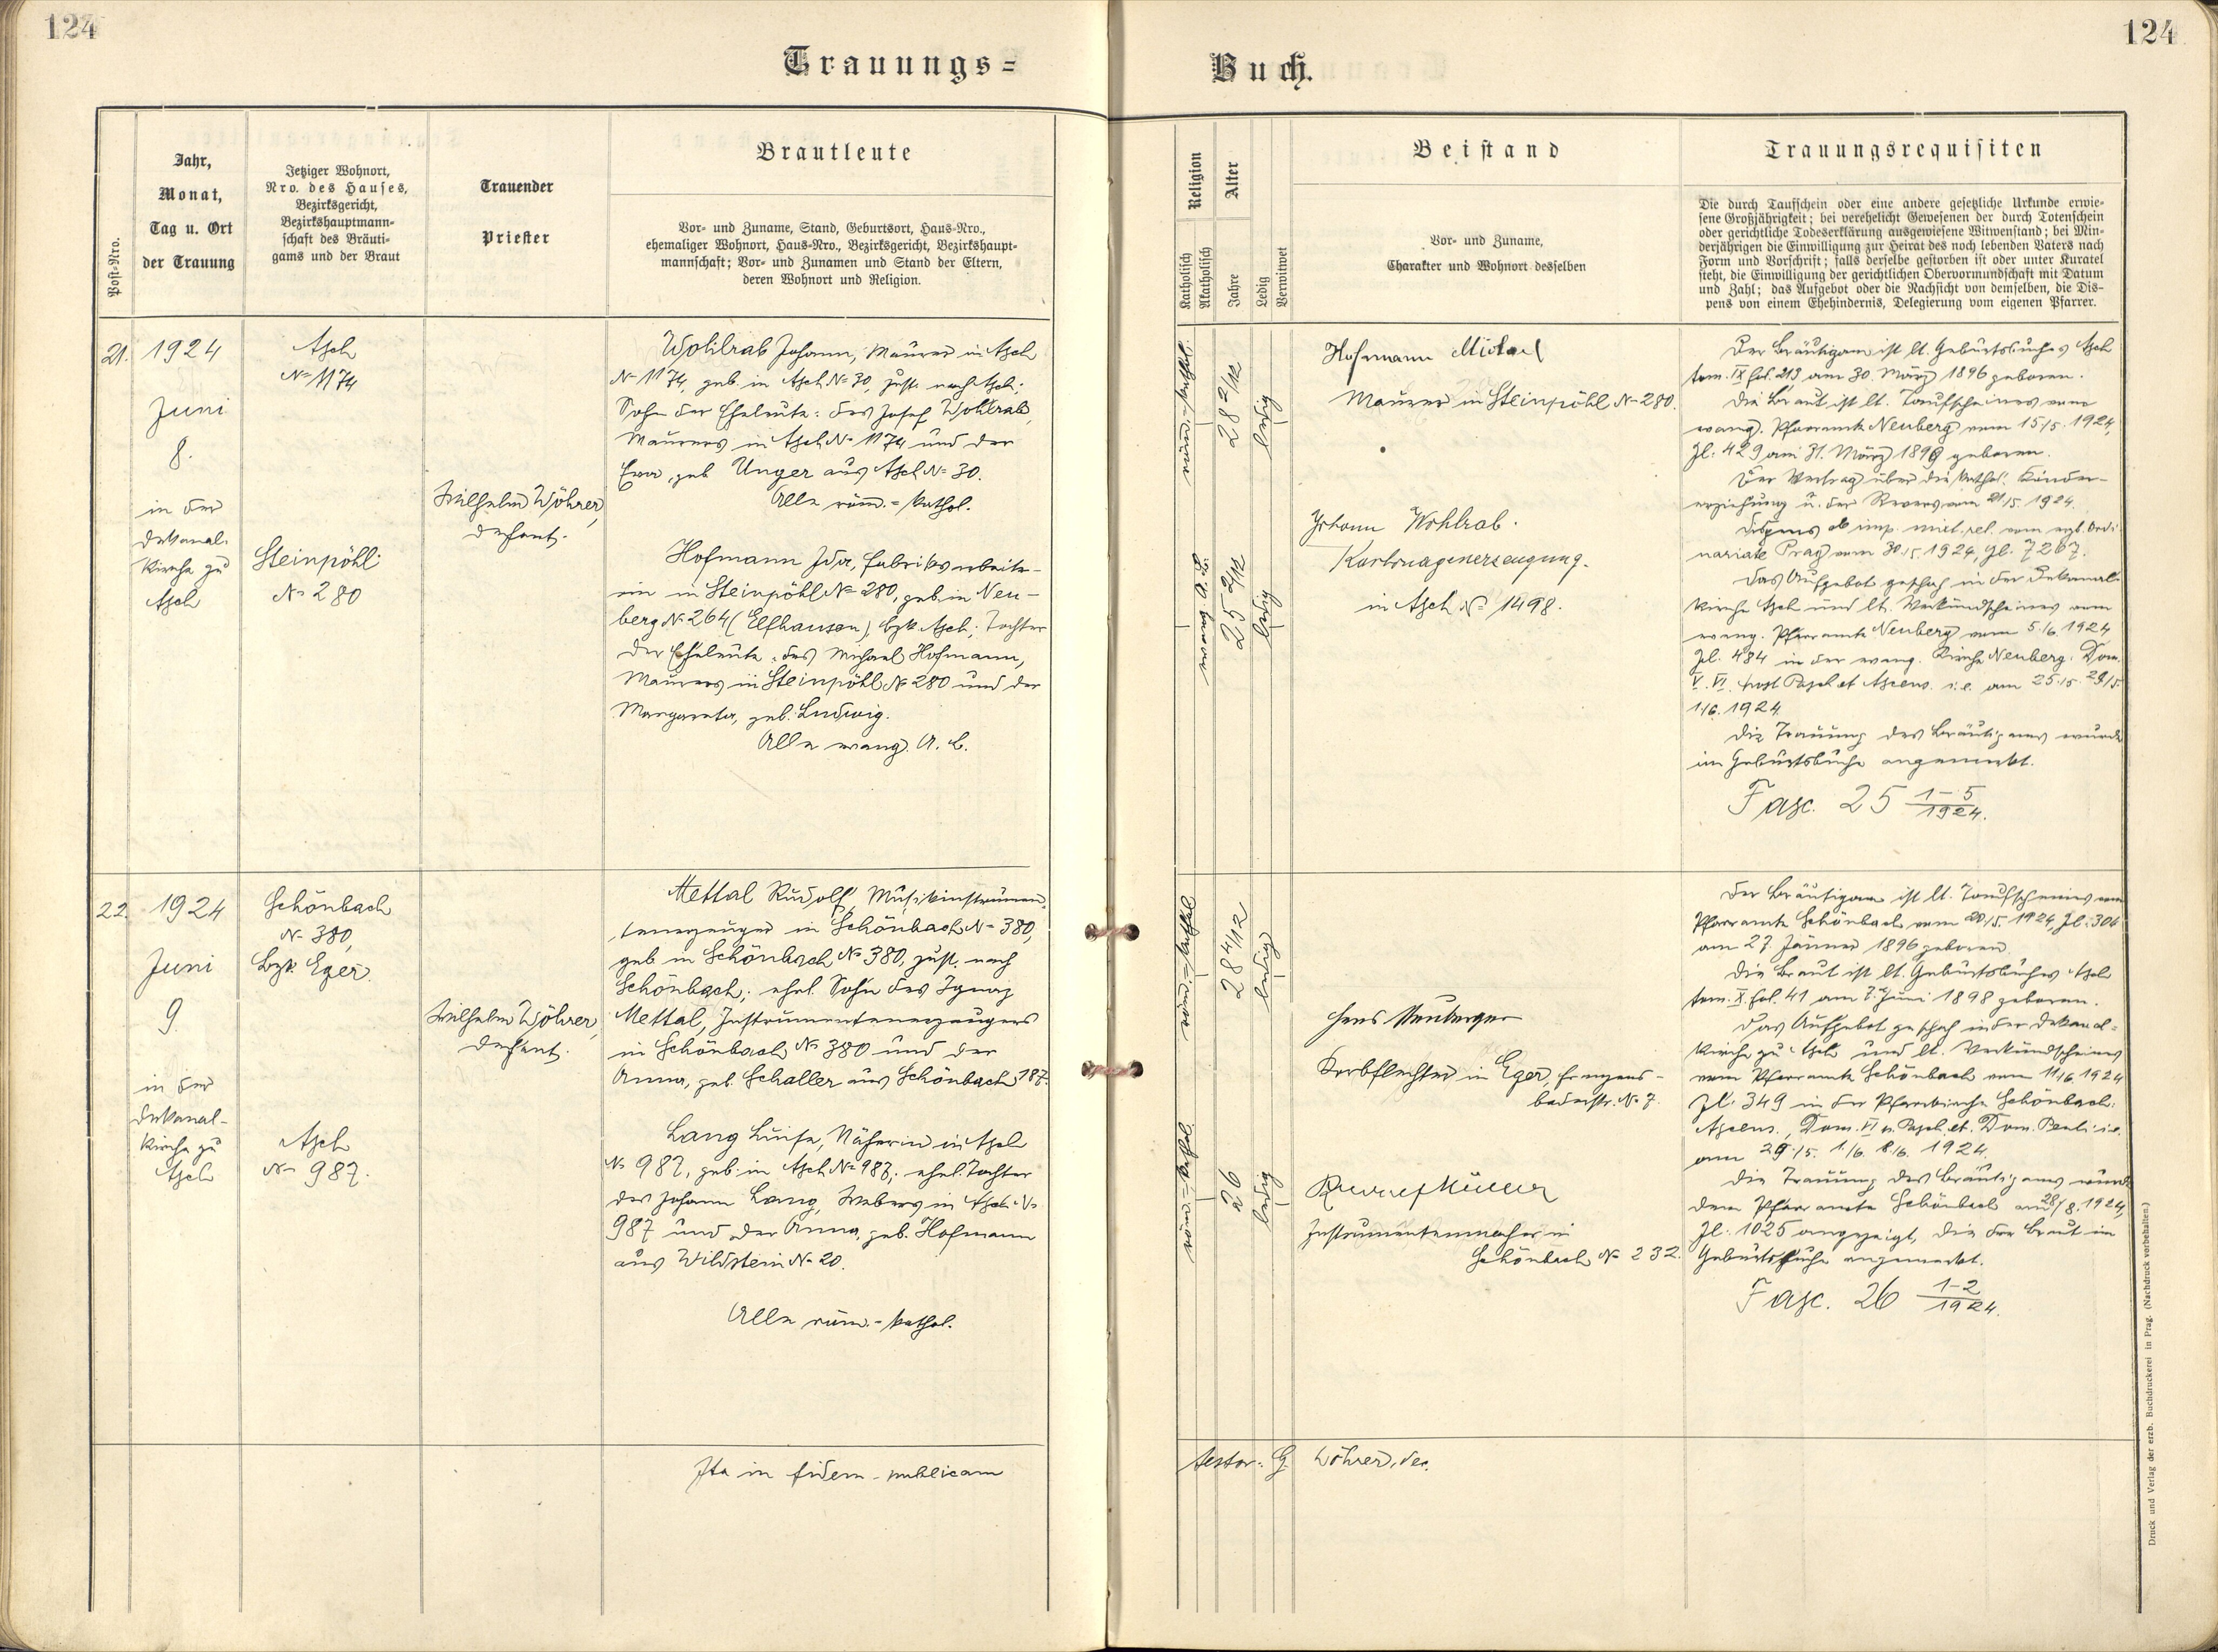 124
124
Trauungs=
Buch.
Post=Nro.
Jahr,
Monat,
Tag u. Ort
der Trauung
Jetziger Wohnort,
Nro. des Hauses,
Bezirksgericht,
Bezirkshauptmann=
schaft des Bräuti=
gams und der Braut
Trauender
Priester
Brautleute
Vor= und Zuname, Stand, Geburtsort, Haus=Nro.,
ehemaliger Wohnort, Haus=Nro., Bezirksgericht, Bezirkshaupt=
mannschaft; Vor= und Zunamen und Stand der Eltern,
deren Wohnort und Religion.
Religion
Katholisch
Akatholisch
Alter
Jahre
Ledig
Verwitwet
Beistand
Vor= und Zuname,
Charakter und Wohnort desselben
Trauungsrequisiten
Die durch Taufschein oder eine andere gesetzliche Urkunde erwie=
sene Großjährigkeit; bei verehelicht Gewesenen der durch Totenschein
oder gerichtliche Todeserklärung ausgewiesene Witwenstand; bei Min=
derjährigen die Einwilligung zur Heirat des noch lebenden Vaters nach
Form und Vorschrift; falls derselbe gestorben ist oder unter Kuratel
steht, die Einwilligung der gerichtlichen Obervormundschaft mit Datum
und Zahl; das Aufgebot oder die Nachsicht von demselben, die Dis=
pens von einem Ehehindernis, Delegierung vom eigenen Pfarrer.
21.
1924
Juni
8.
in der
Dekanal=
kirche zu
Asch
Asch
No 1174
Steinpöhl
No 280
Wilhelm Wöhrer,
Dechant.
Wohlrab Johann, Maurer in Asch
No 1174, geb. in Asch No 30, zust. nach Asch;
Sohn der Eheleute: des Josef Wohlrab,
Maurers in Asch No 1174 und der
Eva, geb. Unger aus Asch No 30.
Alle röm.=kathol.
Hofmann Ida, Fabriksarbeite-
rin in Steinpöhl No 280, geb. in Neu-
berg No 264 (Elfhausen) Bzk. Asch; Tochter
der Eheleute: des Michael Hofmann,
Maurers in Steinpöhl No 280 und der
Margareta, geb. Ludwig.
Alle evang. A. B.
röm.=kathol.
28 2/12
ledig
evang. A. B.
25 2/12
ledig
Hofmann Michael
Maurer in Steinpöhl No 280.
Johann Wohlrab.
Kartonagenerzeugung.
in Asch No 1498.
Der Bräutigam ist lt. Geburtsbuches Asch
tom. IX fol. 213 am 30. März 1896 geboren.
Die Braut ist lt. Taufscheines vom
evang. Pfarramte Neuberg vom 15/5. 1924,
Zl. 429 am 31. März 1899 geboren.
Der Vertrag über die kathol. Kinder-
erziehung u. der Revers vom 21/5. 1924.
Dispens ab imp. mixt. rel. vom erzb. Ordi-
nariate Prag vom 30/5. 1924, Zl. 7267.
Das Aufgebot geschah in der Dekanal=
kirche Asch und lt. Verkündscheines vom
evang. Pfarramte Neuberg vom 5./6. 1924
Zl. 484 in der evang. Kirche Neuberg: Dom.
V. VI. post Pasch et Ascens. i.e. am 25./5. 29/5.
1./6. 1924.
Die Trauung des Bräutigams wurde
im Geburtsbuche angemerkt.
Fasc. 25 1-5/1924.
22.
1924
Juni
9
in der
Dekanal-
kirche zu
Asch
Schönbach
No 380,
Bzk. Eger.
Asch
No 987.
Wilhelm Wöhrer,
Dechant.
Mettal Rudolf, Musikinstrumen-
tenerzeuger in Schönbach No 380,
geb. in Schönbach No 380, zust. nach
Schönbach; ehel. Sohn des Ignaz
Mettal, Instrumentenerzeugers
in Schönbach No 380 und der
Anna, geb. Schaller aus Schönbach 187.
Lang Luise, Näherin in Asch
No 987, geb. in Asch No 987; ehel. Tochter
des Johann Lang, Webers in Asch No
987 und der Anna, geb. Hofmann
aus Wildstein No 20.
Alle röm.=kathol.
röm.=kathol
28 4/12
ledig
röm.=kathol.
26
ledig
Hans Neuberger
Korbflechter in Eger, Franzens-
baderstr. No 7.
Rudolf Müller
Instrumentenmacher in
Schönbach No 232.
Der Bräutigam ist lt. Taufscheines vom
Pfarramte Schönbach vom 20/5. 1924, Zl. 304
am 27 Jänner 1896 geboren.
Die Braut ist lt. Geburtsbuches Asch
tom. X. fol. 41 am 7. Juni 1898 geboren.
Das Aufgebot geschah in der Dekanal=
kirche zu Asch und lt. Verkündscheines
vom Pfarramte Schönbach vom 11/6. 1924
Zl. 349 in der Pfarrkirche Schönbach:
Ascens., Dom. VI p. Pasch. et. Dom. Pent. i.e.
am 29./5. 1./6. 8./6. 1924.
Die Trauung des Bräutigams wurde
dem Pfarramte Schönbach am 28/8. 1924,
Zl. 1025 angezeigt, die der Braut im
Geburtsbuche angemerkt.
Fasc. 26 1-2/1924.
Ita in fidem publicam
testor: G. Wöhrer, dec.
Druck und Verlag der erzb. Buchdruckerei in Prag. (Nachdruck vorbehalten.)